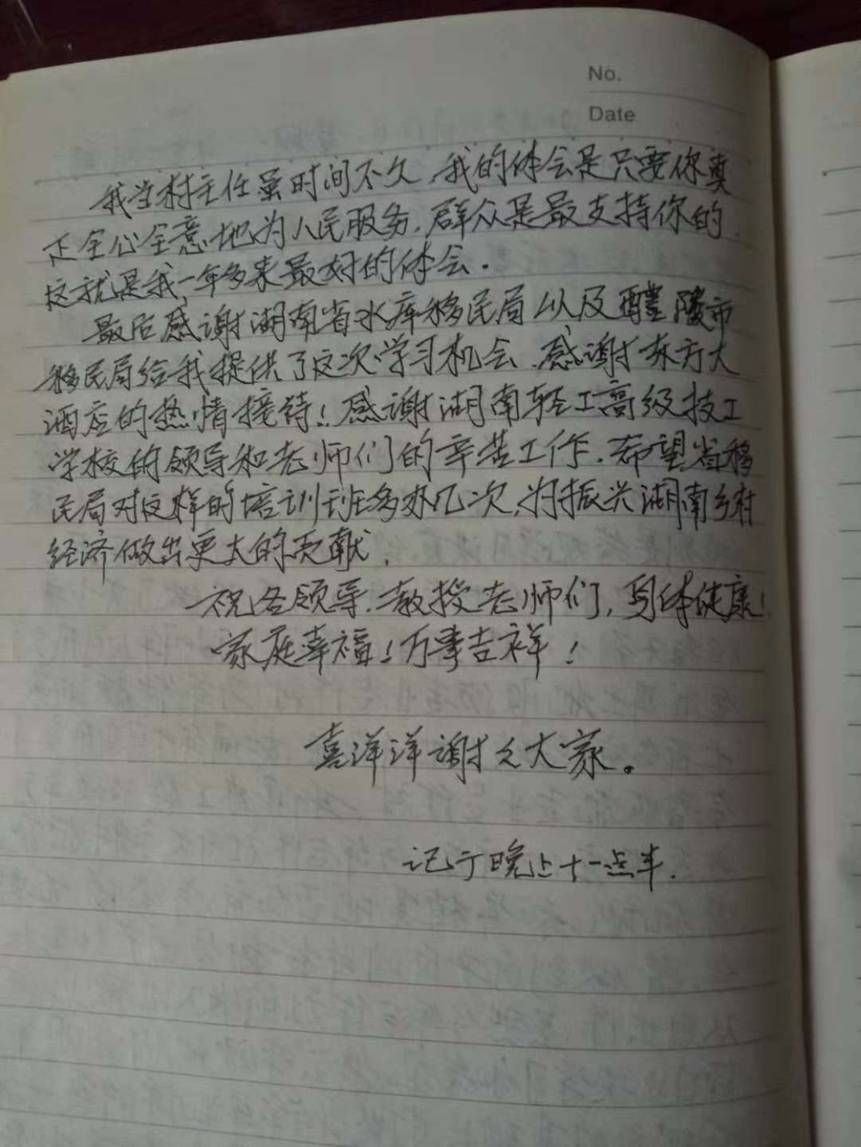 No.
Date
我当村主任虽时间不久,我的体会是只要你真
正全心全意地为人民服务,群众是最支持你的,
这就是我一年多来最好的体会.
最后感谢湖南省水库移民局以及醴陵市
移民局给我提供了这次学习机会.感谢东方大
酒店的热情接待!感谢湖南轻工高级技工
学校的领导和老师们的辛苦工作.希望省移
民局对这样的培训班多办几次,为振兴湖南乡村
经济做出更大的贡献.
祝各领导.教授老师们,身体健康!
家庭幸福!万事吉祥!
喜洋洋谢々大家。
记于晚上十一点半.